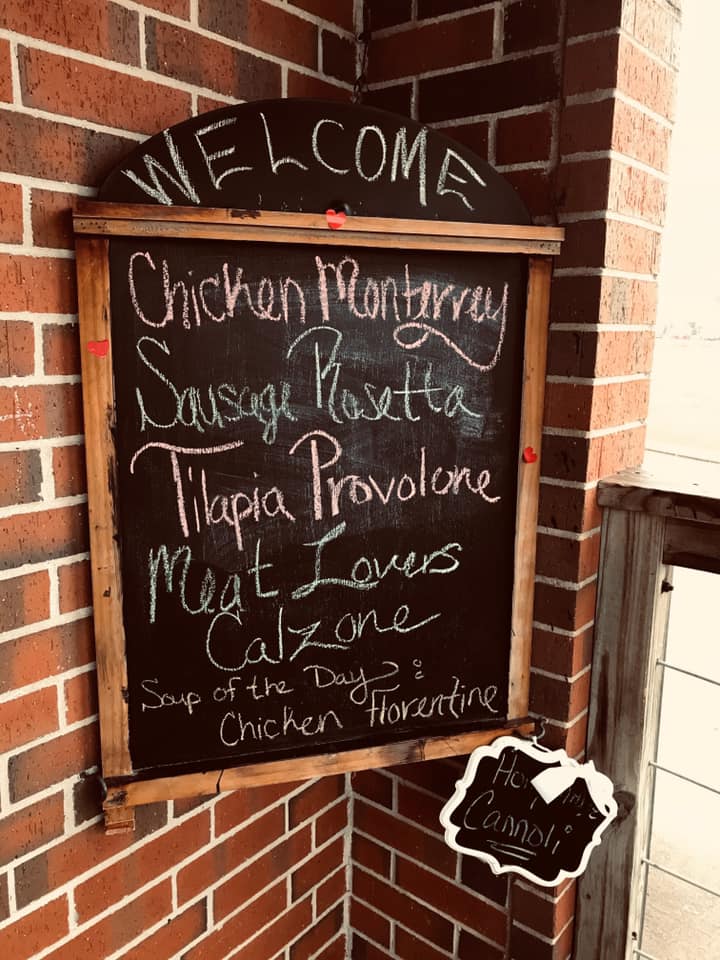 WELCOME
Chicken Monterrey
Sausage Rosetta
Tilapia Provolone
Meat Lovers
Calzone
Soup of the Day :
Chicken Florentine
Cannoli